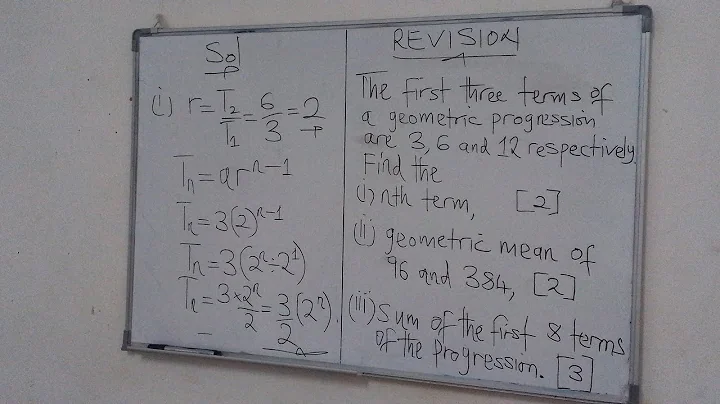 Sol
(i) r = T₂/T₁ = 6/3 = 2
Tₙ = arⁿ⁻¹
Tₙ = 3(2)ⁿ⁻¹
Tₙ = 3(2ⁿ ÷ 2¹)
Tₙ = 3×2ⁿ/2 = 3/2(2ⁿ).
REVISION
The first three terms of
a geometric progression
are 3, 6 and 12 respectively.
Find the
(i) nth term, [2]
(ii) geometric mean of
96 and 384, [2]
(iii) Sum of the first 8 terms
of the progression. [3]